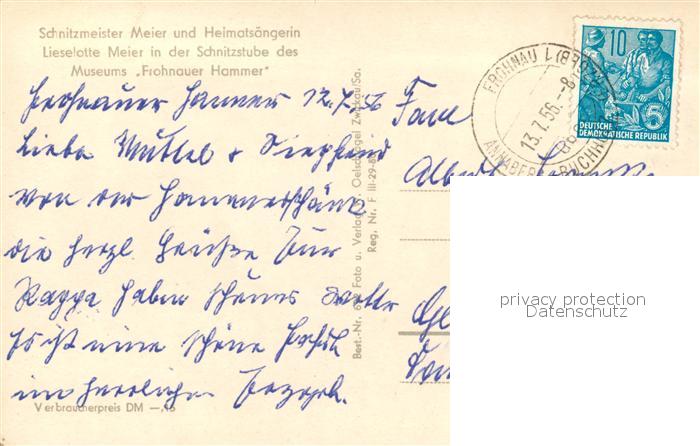 Schnitzmeister Meier und Heimatsängerin
Lieselotte Meier in der Schnitzstube des
Museums „Frohnauer Hammer"
Frohnauer Hammer 12.7.56
Liebe Muttel + Siegfried
von der Hammerschänke
die herzl. Grüße. Wir
haben schönes Wetter
Es ist eine schöne Fahrt
im herrlichen Erzgeb.
Verbraucherpreis DM —,15
Best.-Nr. Foto u. Verlag Oelschlägel Zwickau/Sa.
Reg. Nr. F III-29-85
Frau
FROHNAU
13.7.56.-8
ANNABERG-BUCHHOLZ
10
5
DEUTSCHE
DEMOKRATISCHE REPUBLIK
privacy protection
Datenschutz